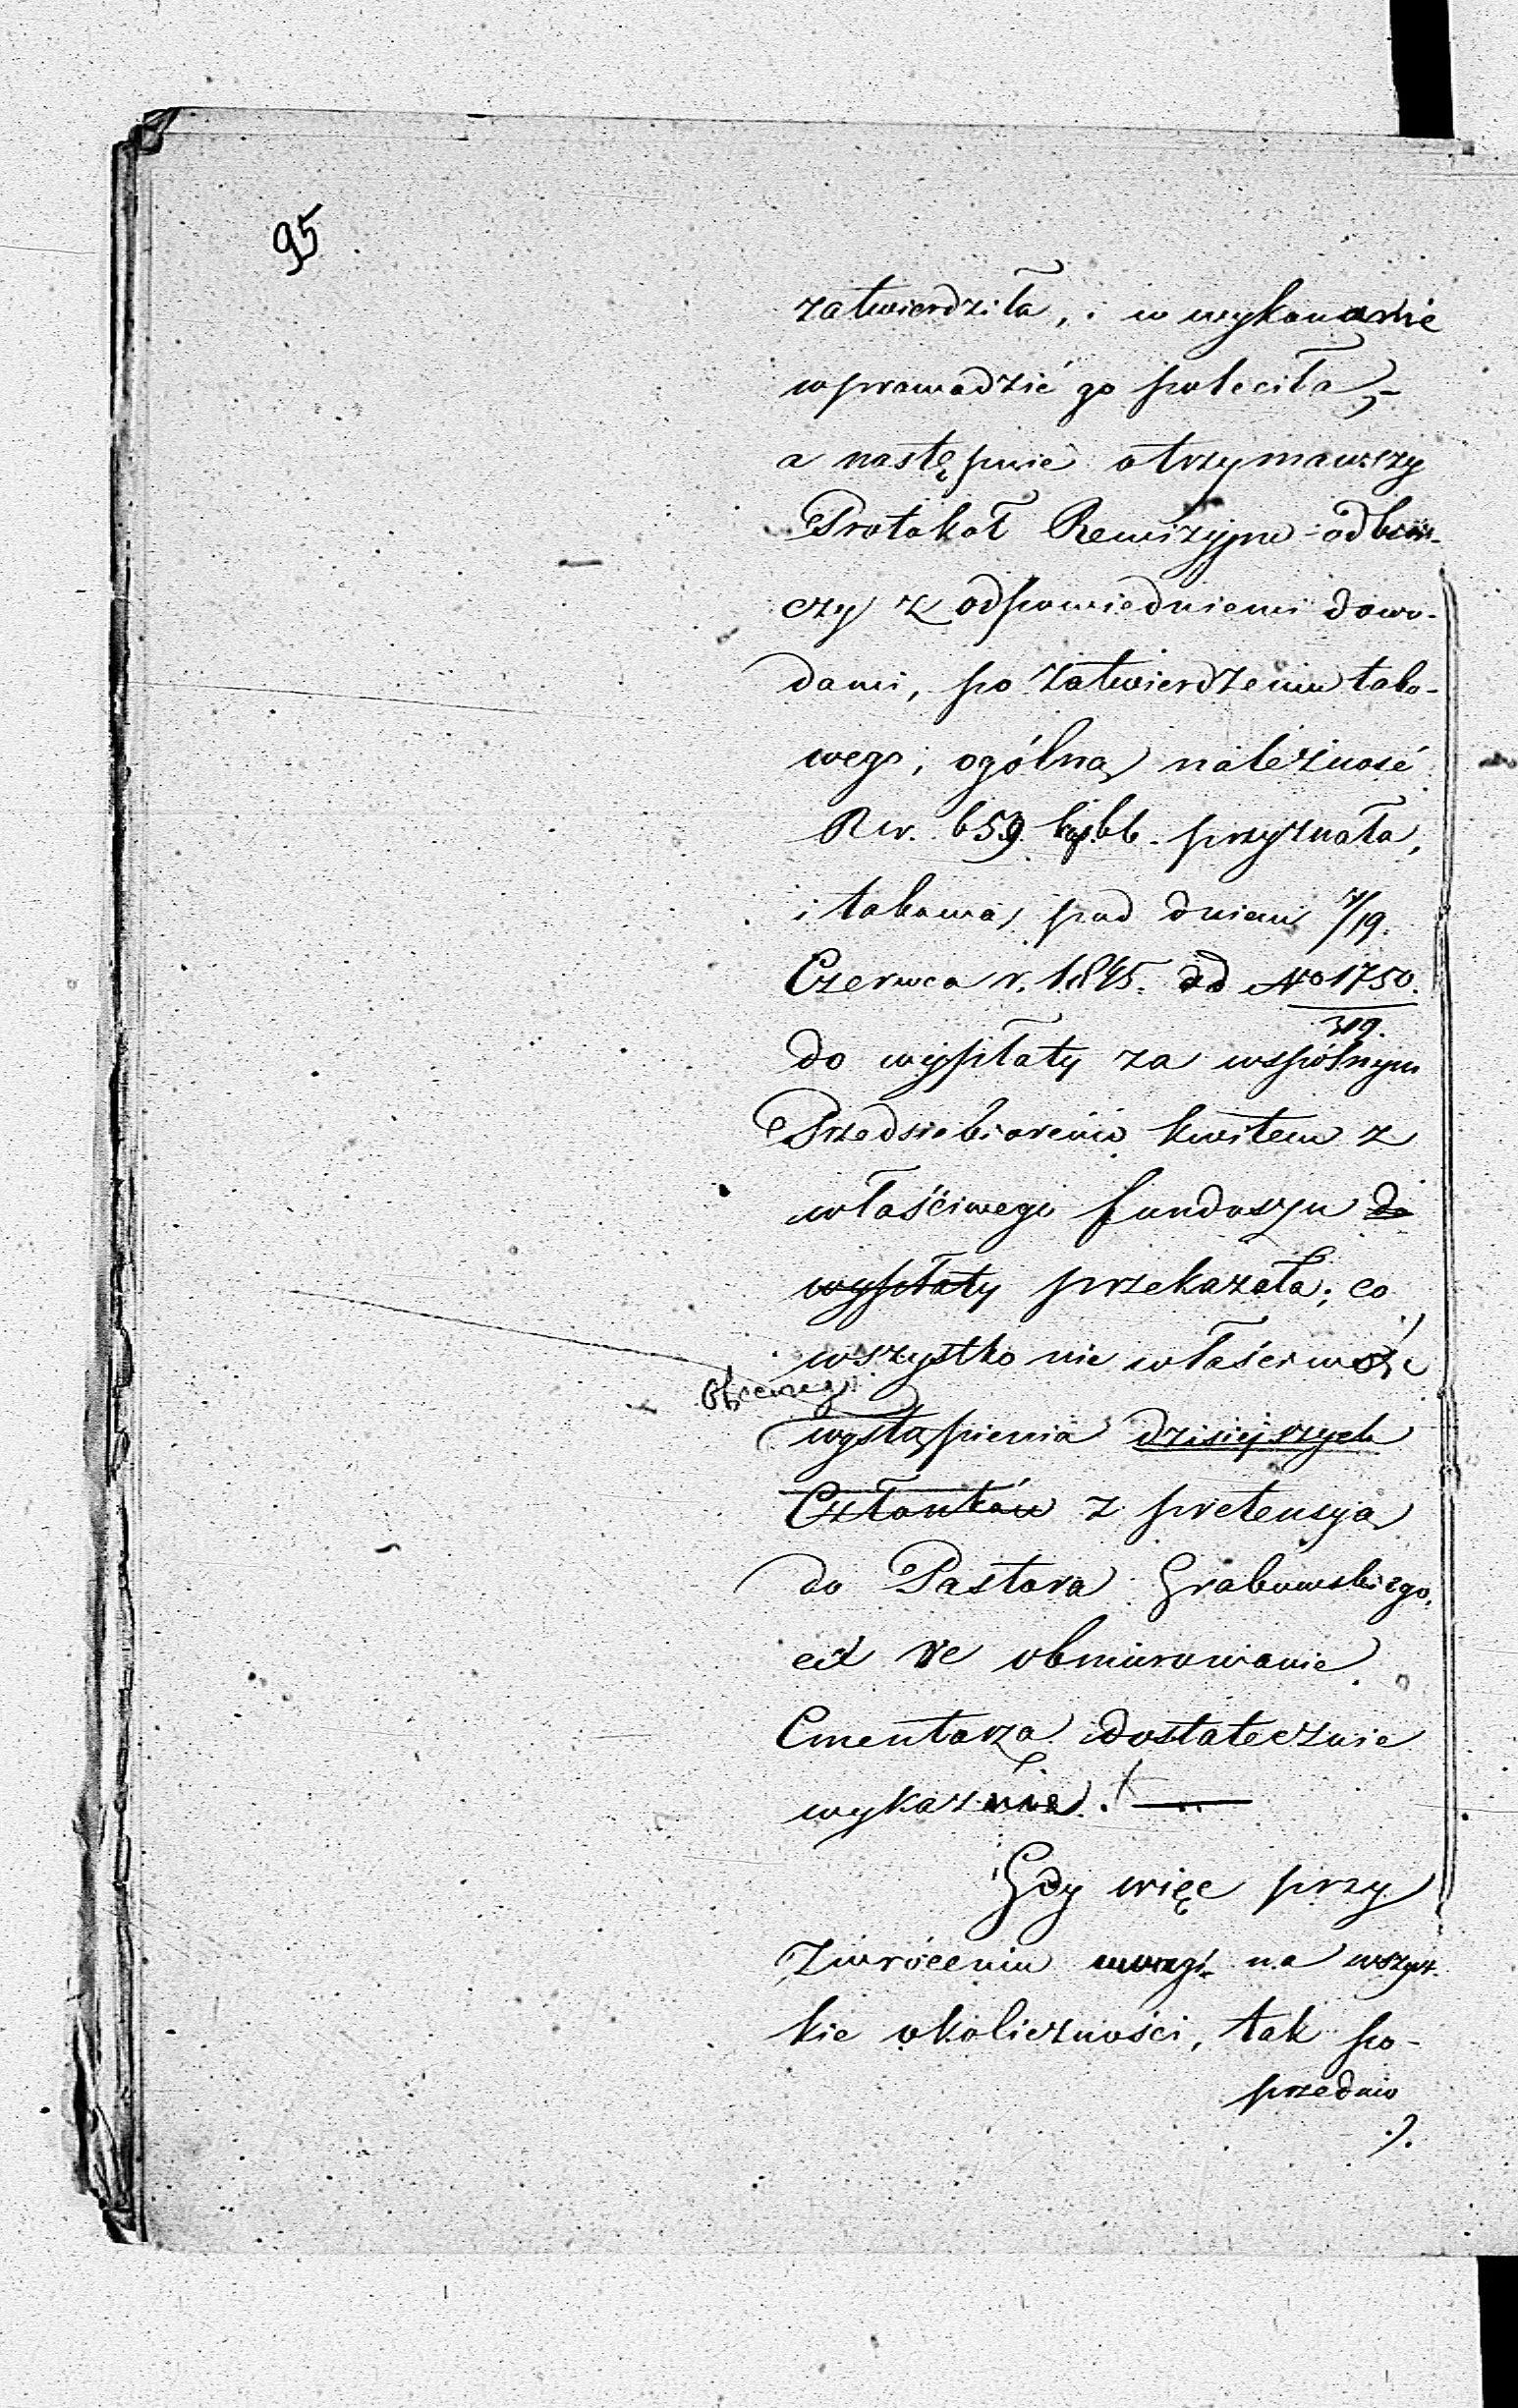 95
zatwierdziła, i w wykonanie
wprowadzić go poleciła,-
a następnie otrzymawszy
Protokół Rewizyjno-odbior-
czy z odpowiedniemi dowo-
dami, po zatwierdzeniu tako-
wego, ogólną należność
Rsr. 659. kp. 66. przyznała,
i takową pod dniem 7/19.
Czerwca r. 1845. ad No 1750.
319.
do wypłaty za wspólnym
Przedsiebiorców kwitem z
właściwego funduszu do
wypłaty przekazała; co
wszystko nie właściwość
obecnego
wystąpienia dzisiejszych
Członków z pretensyą
do Pastora Grabowskiego,
což že obmurowanie
Cmentarza dostatecznie
wykaznie.
Gdy więc przy
zwróceniu uwagi na wszyst-
kie okoliczności, tak po-
przednio
./.